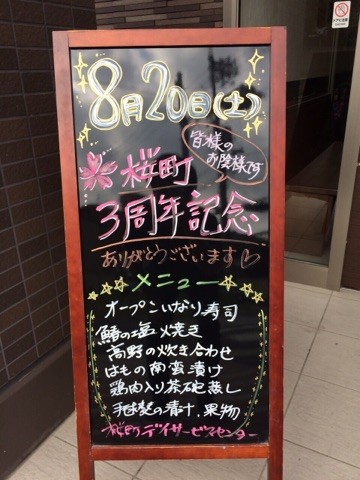 8月20日(土)
皆様の
お陰様です
桜町
3周年記念
ありがとうございます♡
メニュー
オープンいなり寿司
鰆の塩焼き
高野の炊き合わせ
はもの南蛮漬け
鶏肉入り茶碗蒸し
手毬麩の清汁、果物
桜町デイサービスセンター